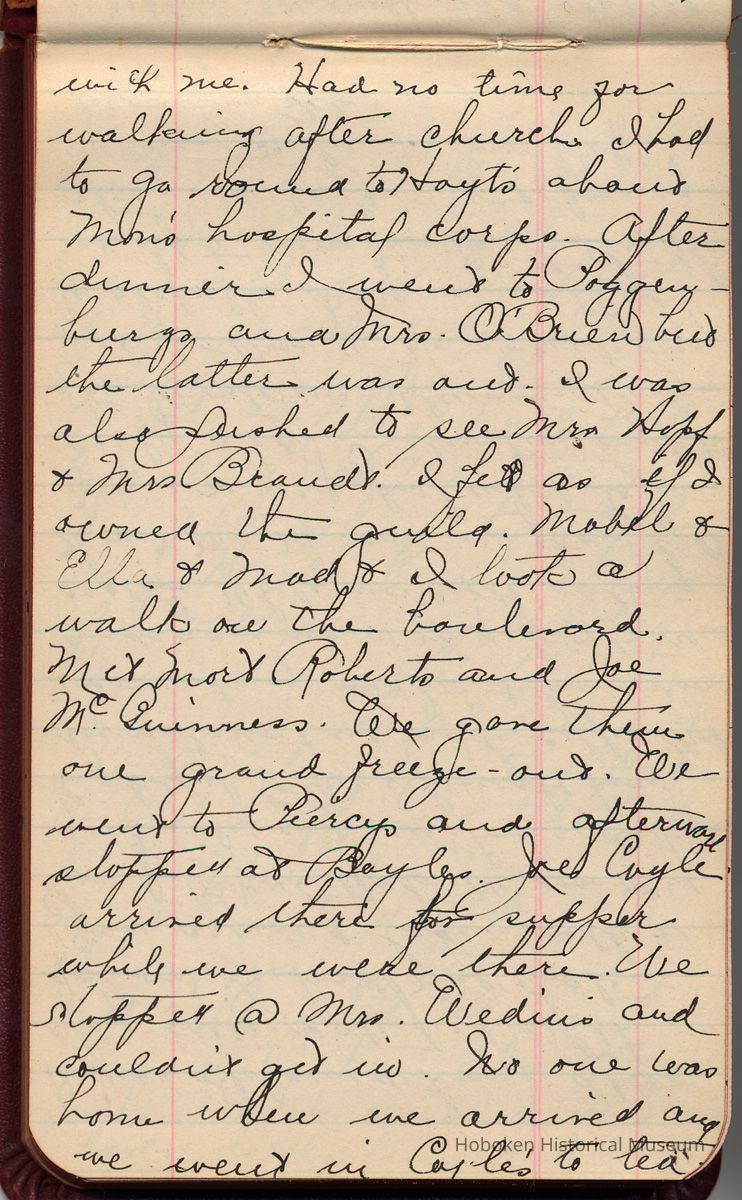 with me. Had no time for
walking after church. I had
to go round to Hoyt's about
Mon's hospital corps. After
dinner I went to Poggen-
burgs and Mrs. O'Brien but
the latter was out. I was
also to see Mrs Hopf
& Mrs Brandt. I felt as if I
owned the guild. Mabel &
Ella & Mad & I took a
walk on the boulevard.
Met Mort Roberts and Joe
McGuinness. We gave them
one grand freeze-out. We
went to Piercys and afterward
stopped at Boyles. Joe Coyle
arrived there for supper
while we were there. We
stopped @ Mrs. Wedin's and
couldn't get in. No one was
home when we arrived and
we went in Coyle's to tea.
Hoboken Historical Museum